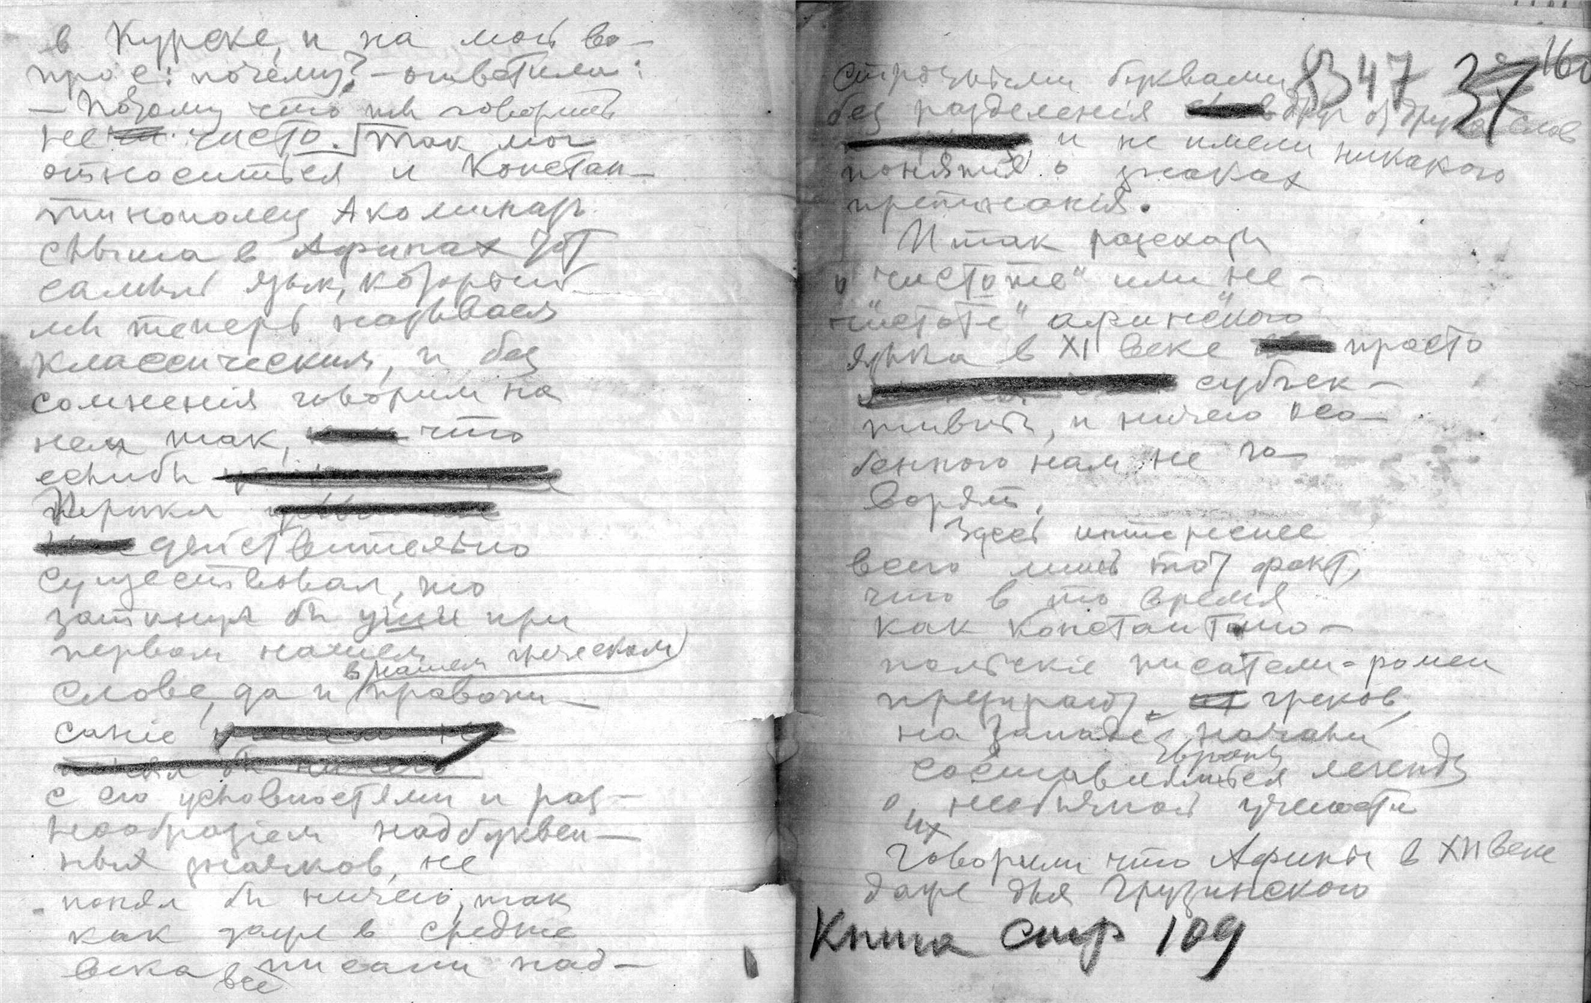 в Курске, и на мой во-
прос: почему? – ответили:
– Потому что там говорят
не чисто. Так мог
относиться и Констан-
тинополец Акоминат
слыша в Афинах тот
самый язык, который
мы теперь называем
классическим, и без
сомнения говорим на
нем так, что
еслибы
Перикл
действительно
существовал, то
заткнул бы уши при
первом нашем
в нашем греческом
слове, да и правопи-
сание
с его условностями и раз-
нообразием надбуквен-
ных значков, не
понял бы ничего, так
как даже в средние
века все писали над-
8347 37 160
строчными буквами
без разделения друг от друга слов
и не имели никакого
понятия о знаках
препинания.
Итак рассказы
о "чистоте" или "не-
чистоте" афинского
языка в XII веке просто
субъек-
тивны, и ничего осо-
бенного нам не го-
ворят.
Здесь интереснее
всего лишь тот факт,
что в то время
как константино-
польские писатели-ромеи
презирают греков,
на Западе Европы начали
составляться легенды
о необъятной учености
их
Говорили что Афины в XII веке
даже для Грузинского
Книга стр 109